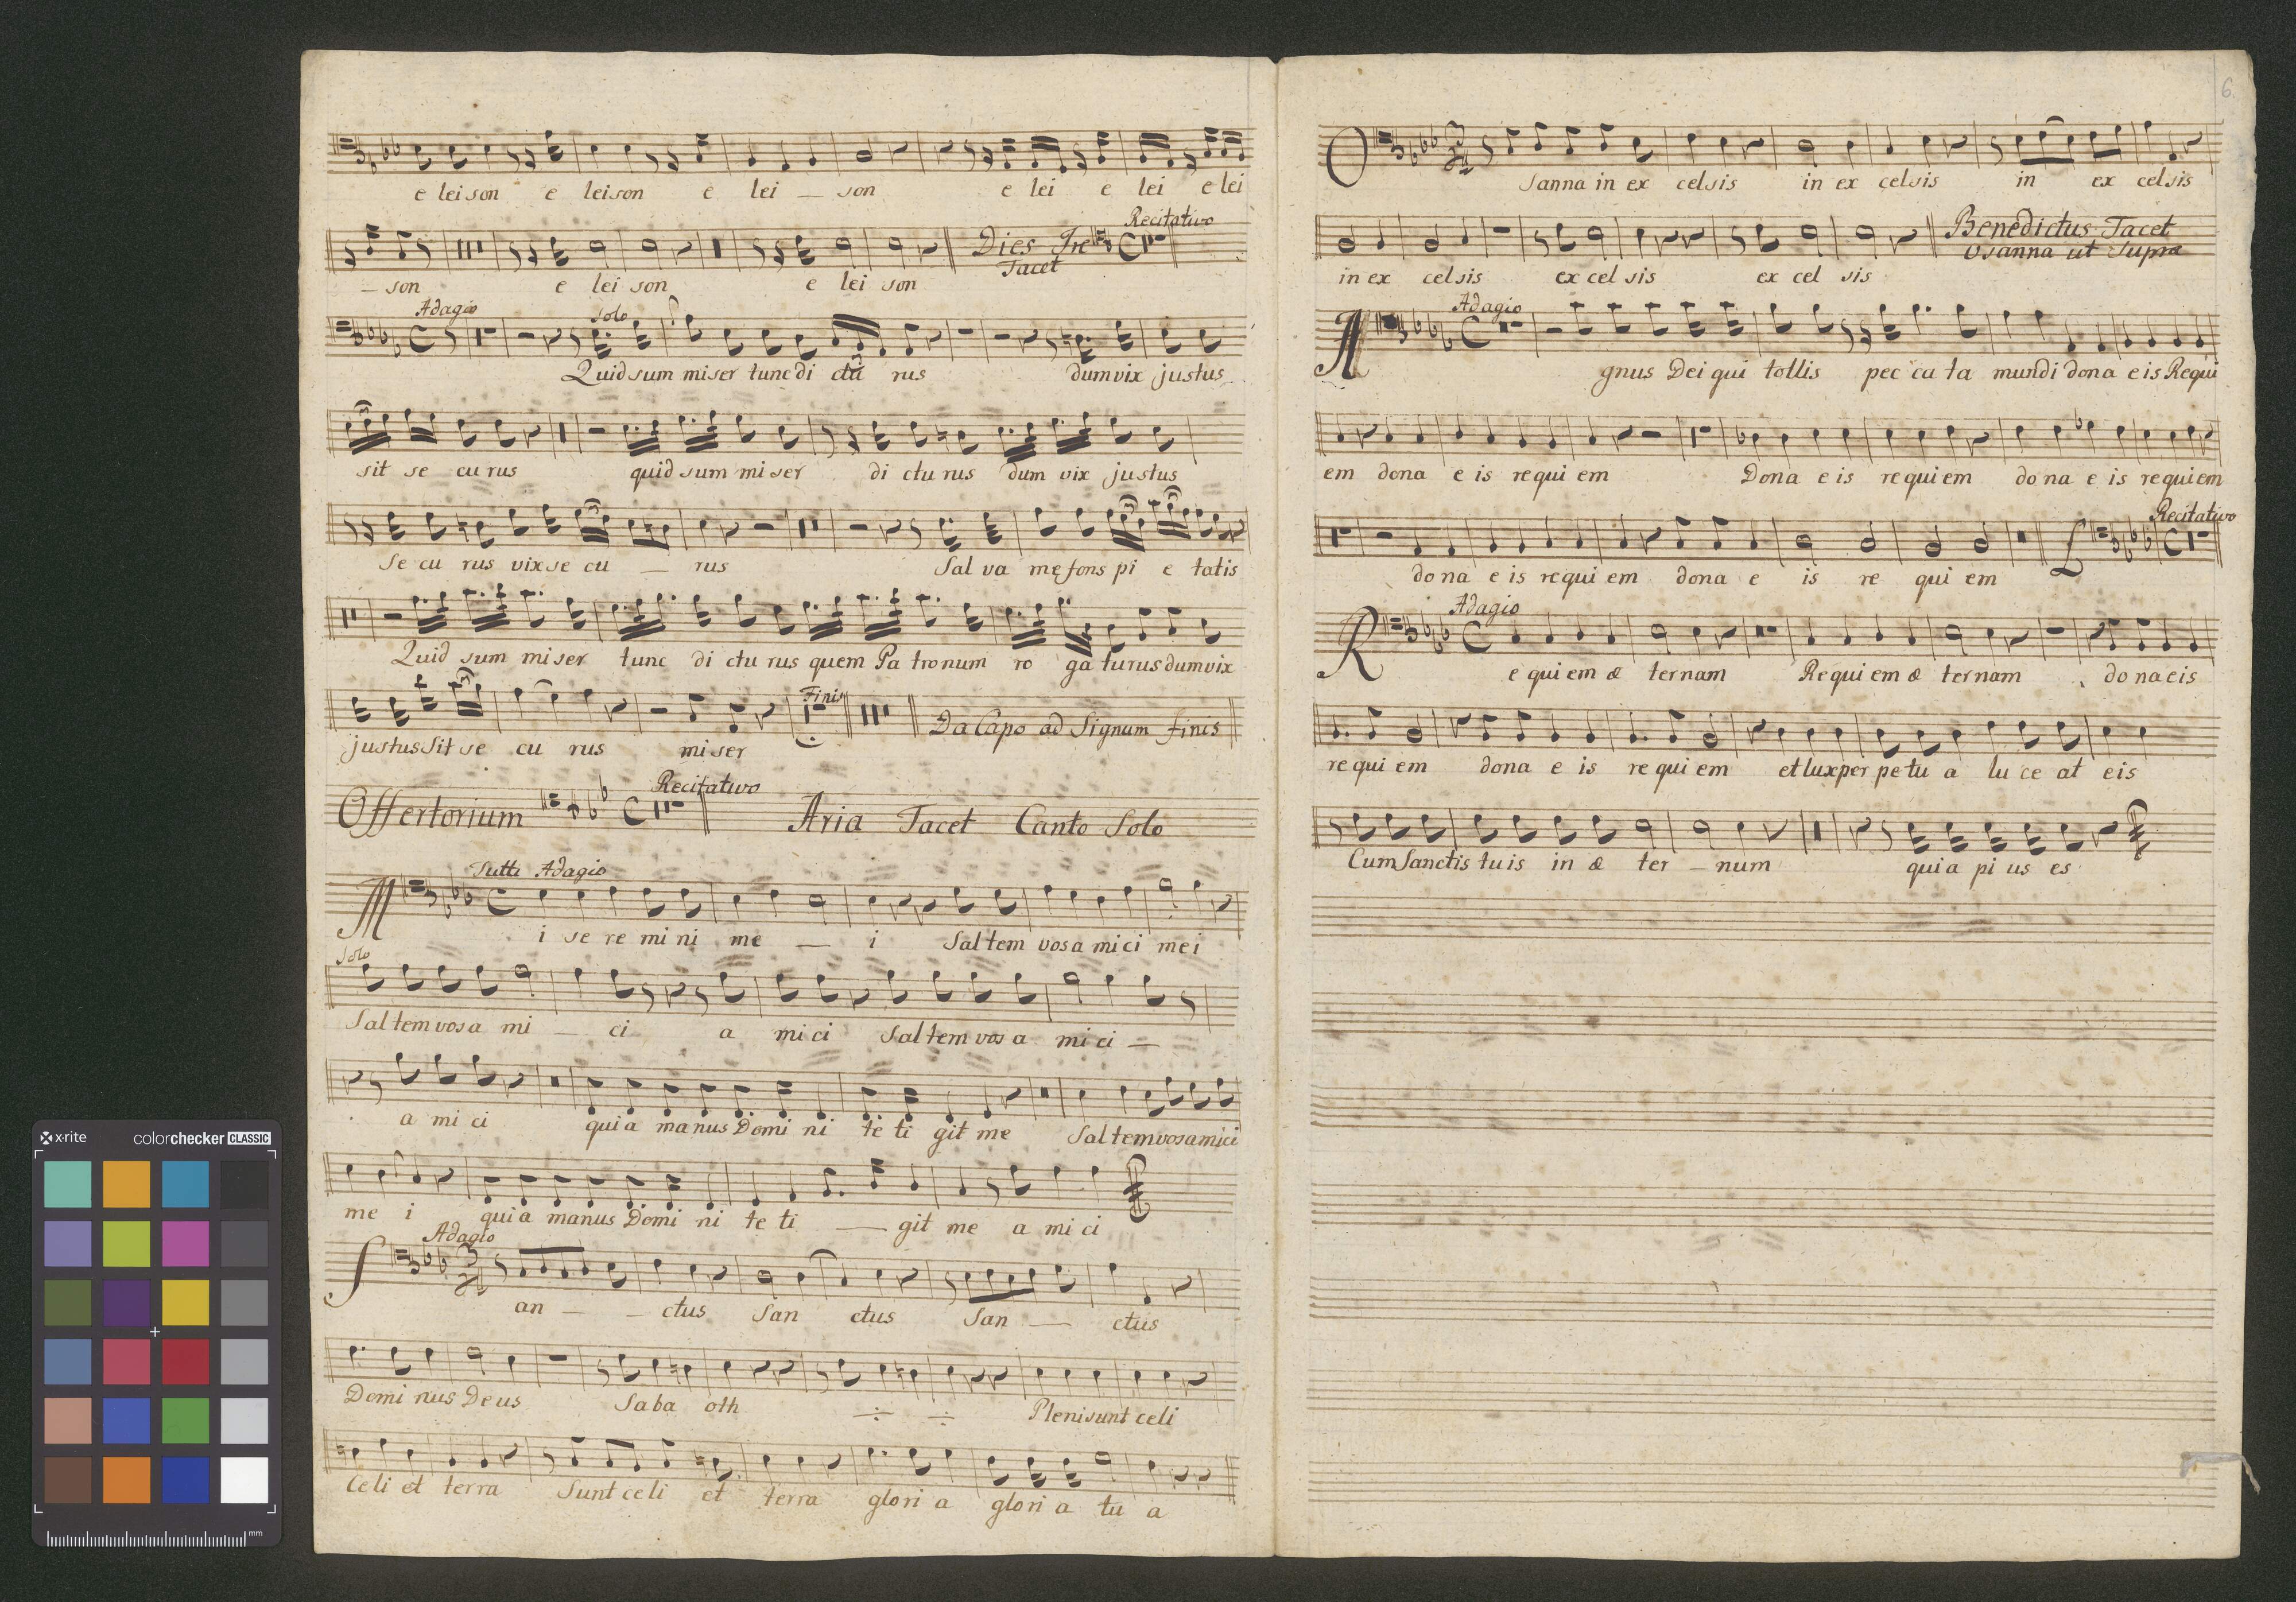 e leison e leison e lei — son e lei e lei e lei
Recitativo
— son e lei son e lei son Dies Ire
Tacet
Adagio Solo
Quid sum miser tunc di ctu rus dum vix justus
sit se cu rus quid sum mi ser di ctu rus dum vix justus
Se cu rus vix se cu — rus Sal va me fons pi e tatis
Quid sum mi ser tunc di ctu rus quem Pa tronum ro ga turus dum vix
Finis
justus Sit se cu rus mi ser Da Capo ad Signum finis
Recitativo
Offertorium Aria Tacet Canto Solo
Tutti Adagio
M i se re mi ni me — i Sal tem vos a mi ci me i
Solo
Sal tem vos a mi — ci a mi ci Sal tem vos a mi ci —
a mi ci qui a ma nus Domi ni te ti git me Sal tem vos a mici
me i qui a manus Domi ni te ti — git me a mi ci
Adagio
S an — — ctus San ctus San — ctus
Domi nus De us Sa ba oth Pleni sunt celi
Celi et terra Sunt celi et terra glori a glori a tu a
6.
O Sanna in ex celsis in ex celsis in ex celsis
Benedictus Tacet
Osanna ut Supra
in ex celsis ex cel sis ex cel sis
Adagio
A gnus Dei qui tollis pec ca ta mundi dona e is Requi
em dona e is requi em Dona e is requi em do na e is requiem
Recitativo
do na e is requi em dona e is re qui em L
Adagio
R e qui em æ ternam Re qui em æ ternam do na eis
re qui em dona e is re qui em et lux per pe tu a lu ce at eis
Cum Sanctis tu is in æ ter — num qui a pi us es
x·rite
colorchecker CLASSIC
mm